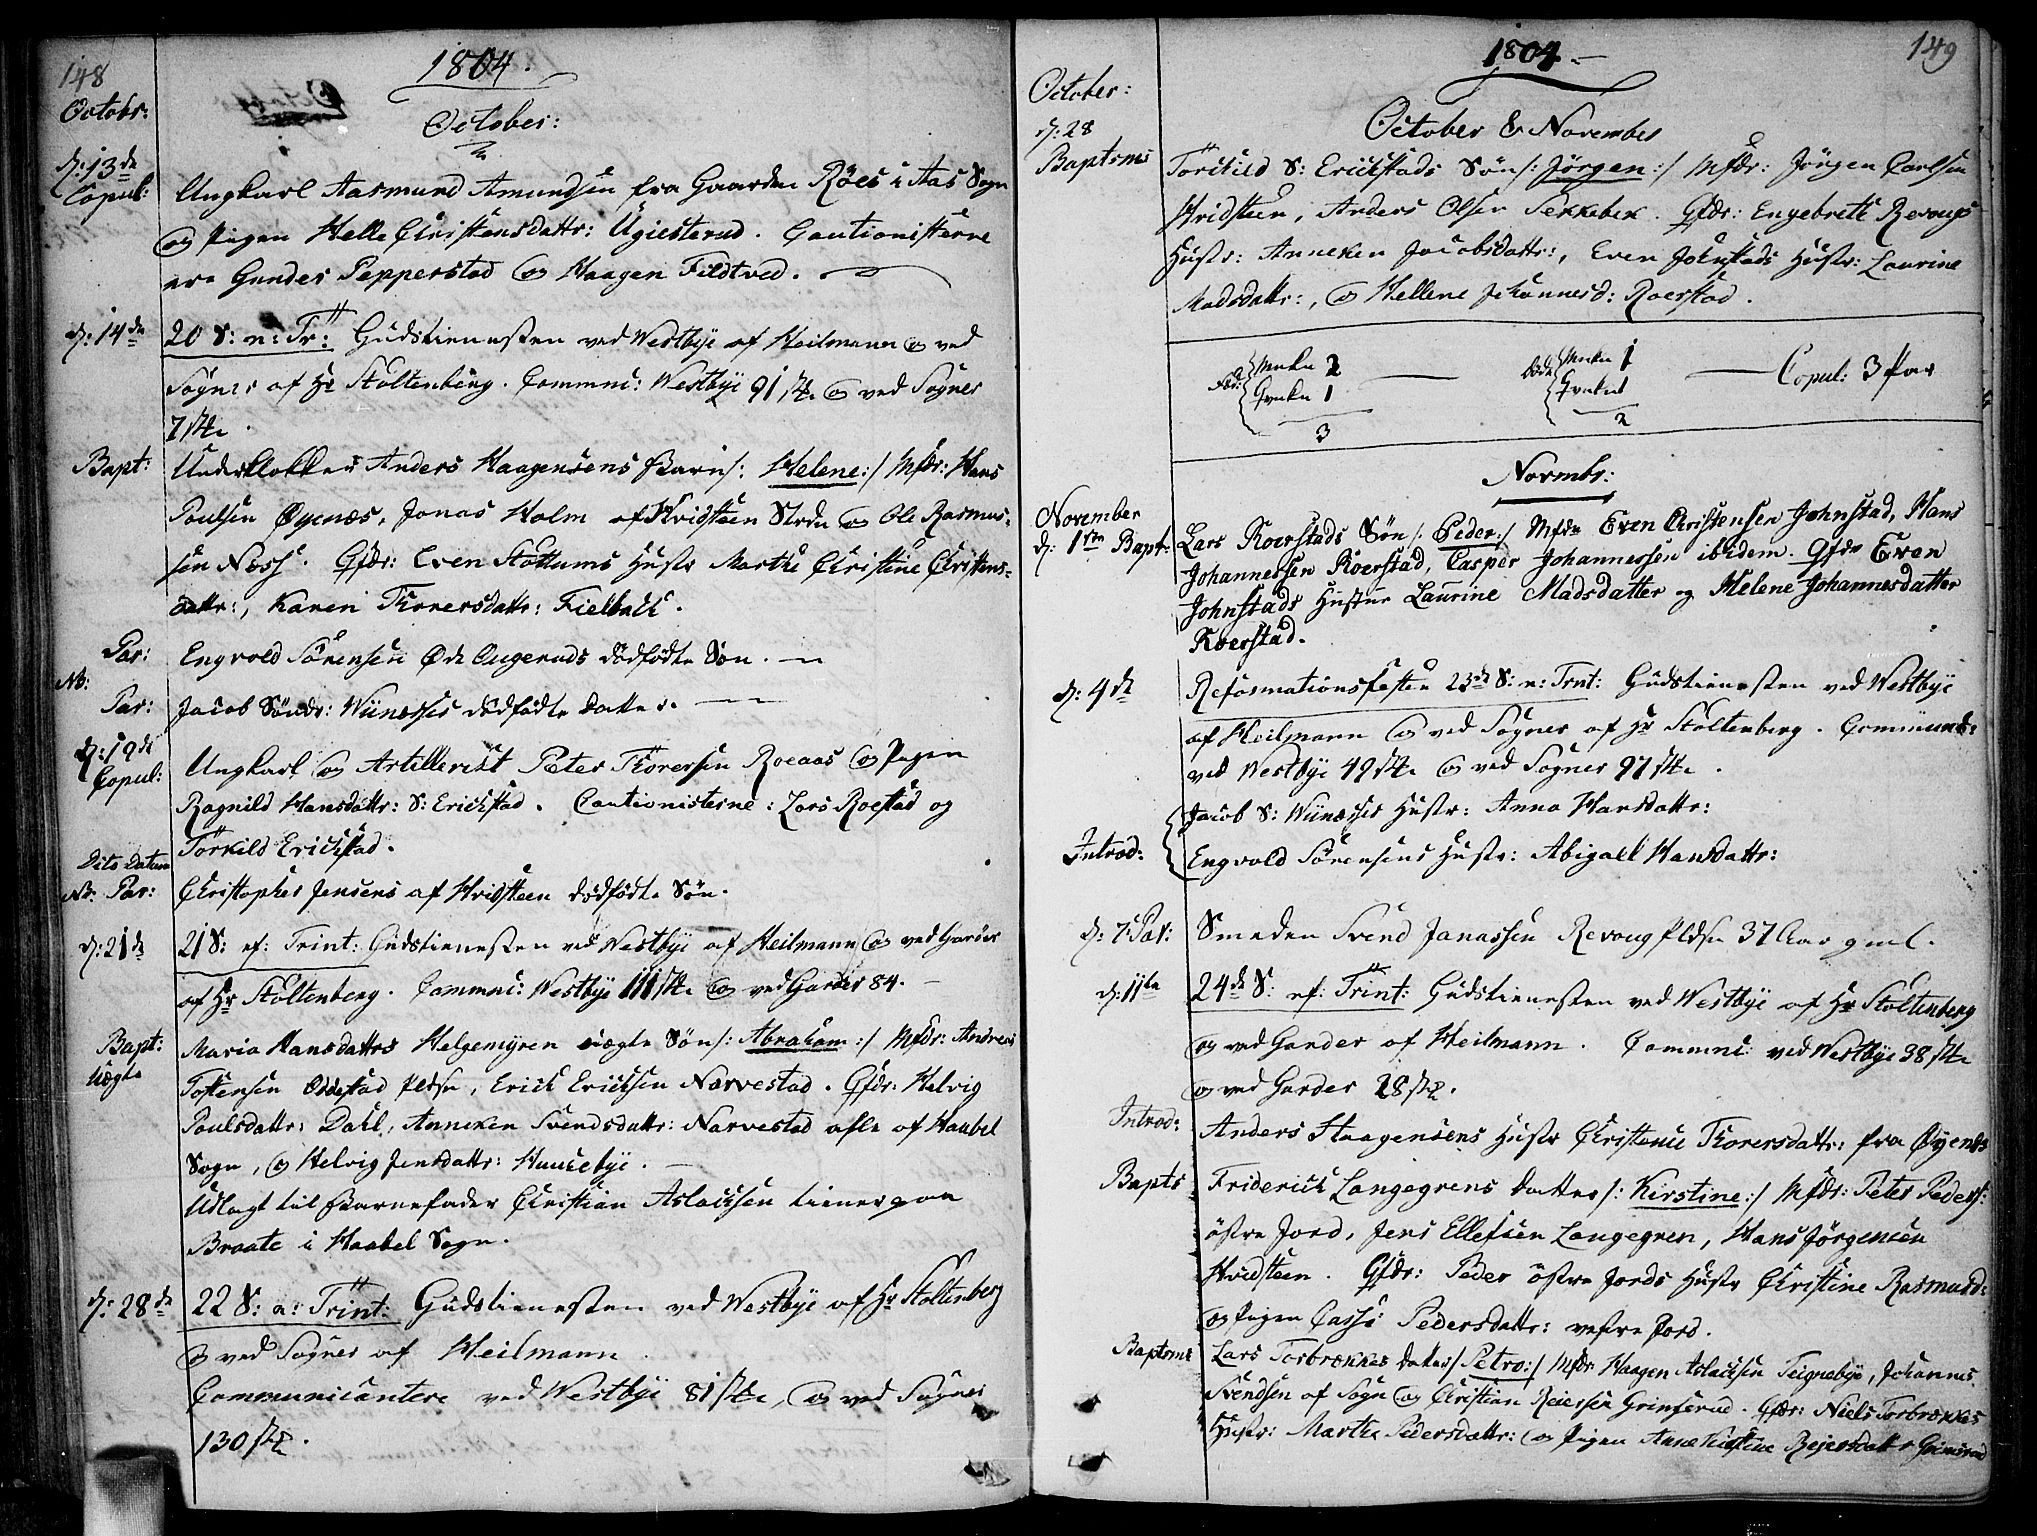 148
1804.
Octobr:
October:
d: 13de
Copul:
Ungkarl Aasmund Amundsen fra Gaarden Röes i Aas Sogn
og Pigen Helle Christensdattr: Ugiesterud. Cautionisterne
ere Gunder Pepperstad og Haagen Fildtved.
d: 14de 20 S: n: Tr: Gudstienesten ved Westbye af Heilmann og ved
Sogner af Hr Stoltenberg. Commni: Westbye 91 stk og ved Sogner
7 stk.
Bapt: Underklokker Anders Haagensens Barn /: Helene :/ Mfdr: Hans
Poulsen Øyenæs, Jonas Holm af Hvidsteen Strdn og Ole Rasmus-
sen Ness. Qfdr: Even Stottums Hustr Marthe Christine Christens-
dattr:, Karen Thorersdattr: Fielback.
Par: Engvold Sörensen Øde Augeruds dödfödte Sön.
No:
Par: Jacob Söndr: Wiinæsses dödfödte Datter.
d: 19de
Copul: Ungkarl og Artillerist Peter Thorersen Roeaas og Pigen
Ragnild Hansdattr: S: Erichstad. Cautionisterne: Lars Roestad og
Torkild Erichstad.
Dito Datum
No. Par: Christopher Jensens af Hvidsteen dödfödte Sön.
d: 21de 21 S: ef: Trint: Gudstienesten ved Westbye af Heilmann og ved Garder
af Hr Stoltenberg. Commni: Westbye 111 stk og ved Garder 84.
Bapt:
Uægte
Maria Hansdattrs Helgemyren uægte Sön /: Abraham :/ Mfdr: Andreas
Tostensen Oddestad Pldsn, Erich Erichsen Narvestad. Qfdr: Helvig
Poulsdattr: Dahl, Anneken Svendsdattr: Narvestad alle af Haabel
Sogn, og Helvig Jensdattr: Huusebye.
Udlagt til Barnefader Christian Aslachsen tiener paa
Braate i Haabel Sogn.
d: 28de 22 S: n: Trint: Gudstienesten ved Westbye af Hr Stoltenberg
og ved Sogner af Heilmann.
Communicantere ved Westbye 81 stk, og ved Sogner
130 stk.
149
1804.
October:
October & November
d: 28
Baptsms Torchild S: Erichstads Sön /: Jörgen :/ Mfdr: Jörgen Carlsen
Hvidsteen, Anders Olsen Sekkebek. Qfdr: Engebrett Revougs
Hustr: Anneken Jacobsdattr:, Even Johnstads Hustr: Laurine
Madsdattr:, og Hellene Johannesd: Roerstad.
Fød: Mnkn 2 Qvnkn 1 3
Døde Mnkn 1 Qvnkn 1 2
Copul: 3 Par
Novmbr:
November
d: 1ste Bapt: Lars Roerstads Sön /: Peder :/ Mfdr Even Christensen Johnstad, Hans
Johannersen Roerstad, Casper Johannersen ibidem. Qfdr Even
Johnstads Hustrue Laurine Madsdatter og Helene Johannesdatter
Roerstad.
d: 4de Reformationsfesten 23de S: n: Trnt: Gudstienesten ved Westbye
af Heilmann og ved Sogner af Hr Stoltenberg. Communc:
ved Westbye 49 stk og ved Sogner 97 stk.
Introd: Jacob S: Wiinæsses Hustr: Anna Hansdattr:
Engvold Sörensens Hustr: Abigael Hansdattr:
d: 7 Par: Smeden Svend Janassen Revoug Pldsn 37 Aar gml.
d: 11te 24de S: ef: Trint: Gudstienesten ved Westbye af Hr Stoltenberg
og ved Garder af Heilmann. Commni: ved Westbye 38 stk
og ved Garder 28 stk.
Introd: Anders Haagensens Hustr Christence Thorersdattr: fra Øyenæs
Bapts Friderich Langegrens Datter /: Kirstine :/ Mfdr: Peter Peders:
östre Jord, Jens Ellefsen Langegren, Hans Jörgensen
Hvidsteen. Qfdr: Peder östre Jords Hustr Christine Rasmusd:
og Pigen Casse Pedersdattr: vestre Jord.
Baptsms Lars Torbrækkes Datter /: Petro :/ Mfdr Haagen Aslachsen Teignebye, Johannes
Svendsen af Sogn og Christian Reiersen Grimserud. Qfdr: Niels Torbrækkes
Hustr: Marthe Pedersdattr: og Pigen Anne Kirstine Rejersdattr Grimsrud